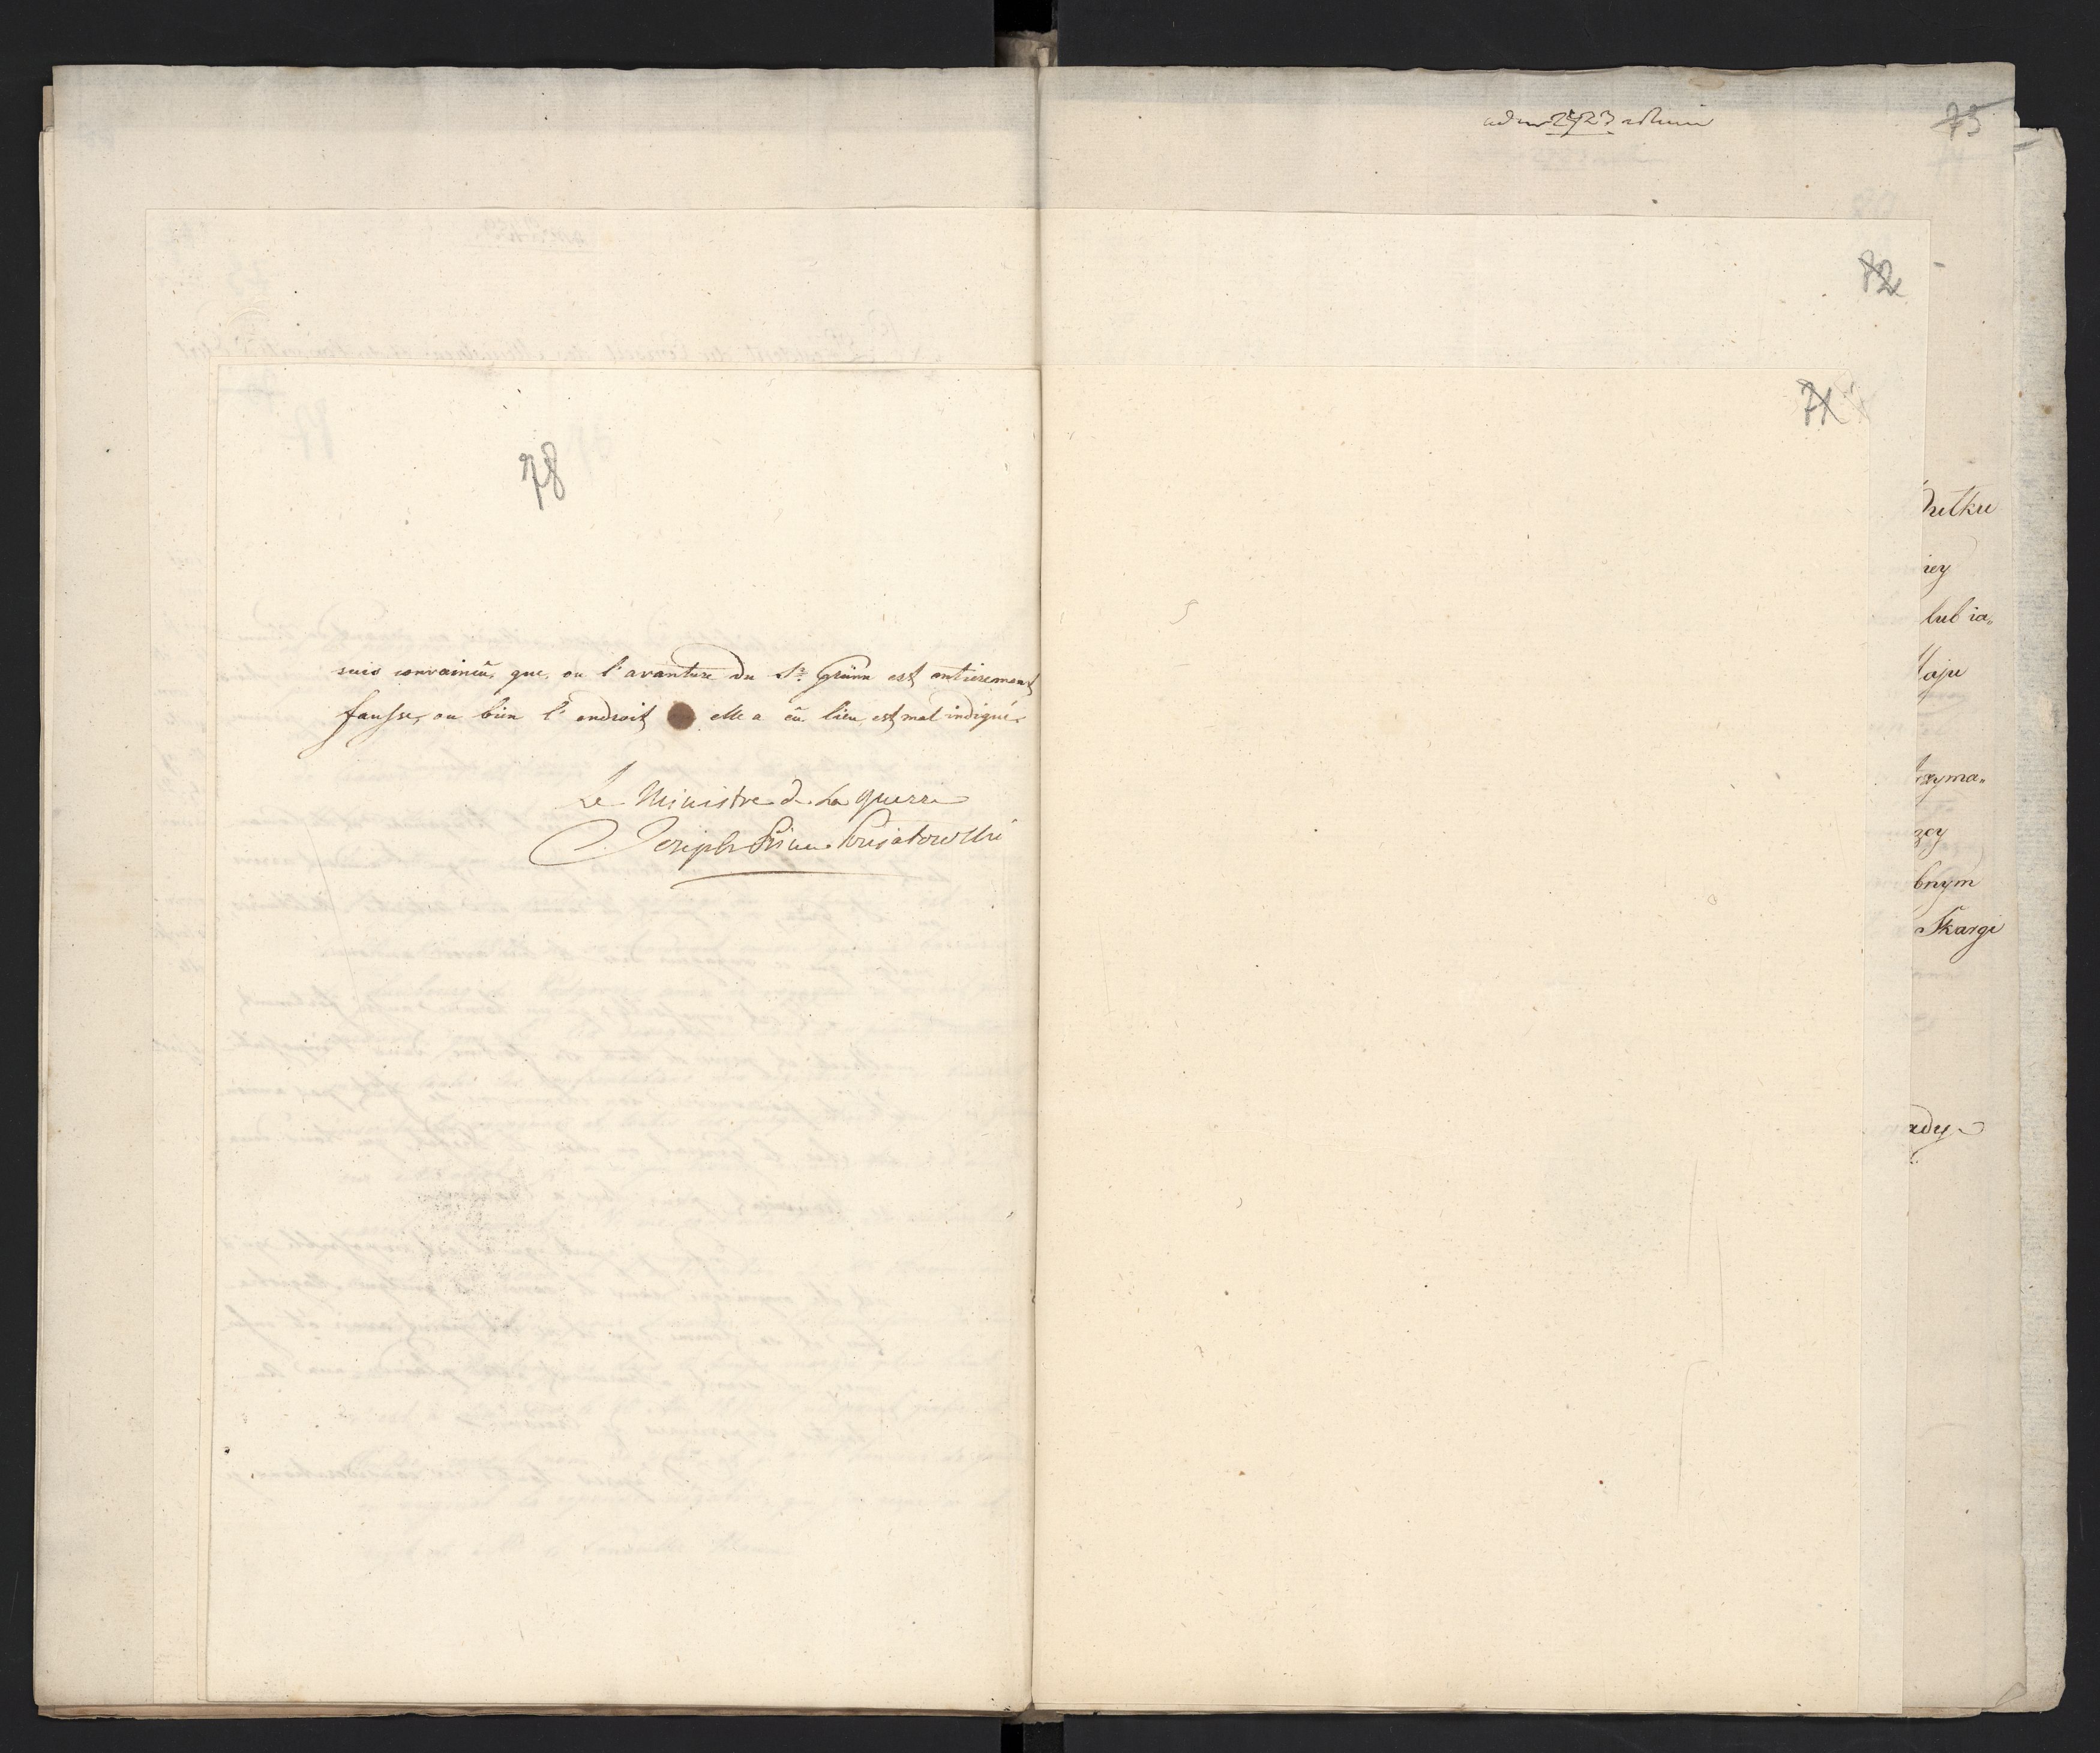 78
suis convaincû, que, ou l'avanture du Sr. Grünn est entierement
fausse, ou bien l'endroit elle a eû lieu, est mal indiqué.
Le Ministre de la guerre
Joseph Prince Poniatowski
ad nr 2423
75
72
71
rey
lub ia„
Maju
zyma„
zcy
bnym
Skargi
ady